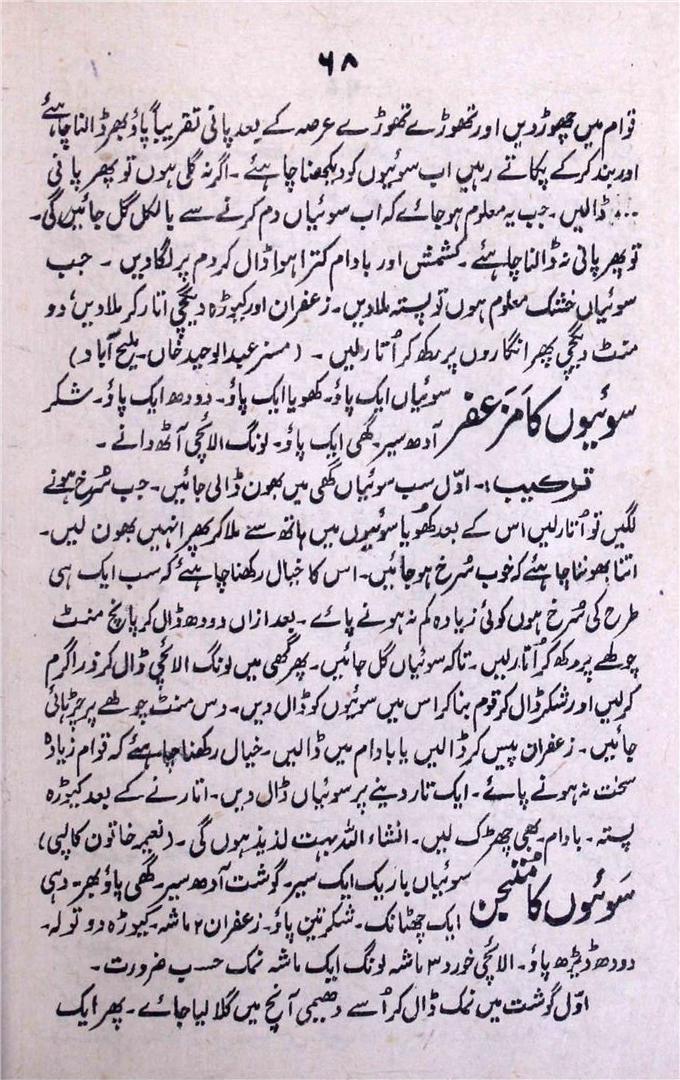 ۶۸
قوام میں چھوڑدیں اور تھوڑے تھوڑے عرصہ کے بعد پانی تقریباً پاؤ بھر ڈالنا چاہئے
اور بند کرکے پکاتے رہیں اب سوئیوں کو دیکھنا چاہئے ۔ اگر نہ گلی ہوں تو پھر پانی
ڈالیں ۔ جب یہ معلوم ہوجائے کہ اب سوئیاں دم کرنے سے بالکل گل جائیں گی۔
تو پھر پانی نہ ڈالنا چاہئے ۔ کشمش اور بادام کترا ہوا ڈال کر دم پر لگادیں ۔ جب
سوئیاں خشک معلوم ہوں تو پستہ ملادیں ۔ زعفران اور کیوڑہ دیگچی اتار کر ملادیں، دو
منٹ دیگچی پھر انگاروں پر رکھ کر اُتارلیں ۔ (مسز عبدالوحید خاں۔ ملیح آباد)
سوئیوں کا مزَعفر سوئیاں ایک پاؤ۔ کھویا ایک پاؤ۔ دودھ ایک پاؤ۔ شکر
آدھ سیر۔ گھی ایک پاؤ۔ لونگ الائچی آٹھ دانے ۔
ترکیب:۔ اوّل سب سوئیاں گھی میں بھون ڈالی جائیں۔ جب سُرخ ہونے
لگیں تو اُتارلیں اس کے بعد کھویا سوئیوں میں ہاتھ سے ملاکر پھر انہیں بھون لیں۔
اتنا بھوننا چاہئے کہ خوب سُرخ ہوجائیں۔ اس کا خیال رکھنا چاہئے کہ سب ایک ہی
طرح کی سُرخ ہوں کوئی زیادہ کم نہ ہونے پائے ۔ بعد ازاں دودھ ڈال کر پانچ منٹ
چولھے پر رکھ کر اُتارلیں ۔ تاکہ سوئیاں گل جائیں۔ پھر گھی میں لونگ الائچی ڈال کر ذرا گرم
کرلیں اور شکر ڈال کر قوم بناکر اس میں سوئیوں کو ڈال دیں۔ دس منٹ چولھے پر چڑہائی
جائیں ۔ زعفران پیس کر ڈالیں یا بادام میں ڈالیں ۔ خیال رکھنا چاہئے کہ قوام زیادہ
سخت نہ ہونے پائے ۔ ایک تار دینے پر سوئیاں ڈال دیں۔ اتارنے کے بعد کیوڑہ
پستہ ۔ بادام۔ بھی چھڑک لیں۔ انشاء اللہ بہت لذیذ ہوں گی ۔ (نعیمہ خاتون کالپی)
سوئیوں کا متنجن سوئیاں باریک ایک سیر۔ گوشت آدھ سیر۔ گھی پاؤ بھر۔ دہی
ایک چھٹانک ۔ شکر تین پاؤ۔ زعفران ۲ ماشہ۔ کیوڑہ دو تولہ۔
دودھ ڈیڑھ پاؤ ۔ الائچی خورد ۳ ماشہ لونگ ایک ماشہ نمک حسب ضرورت ۔
اوّل گوشت میں نمک ڈال کر اُسے دھیمی آنچ میں گلا لیا جائے ۔ پھر ایک